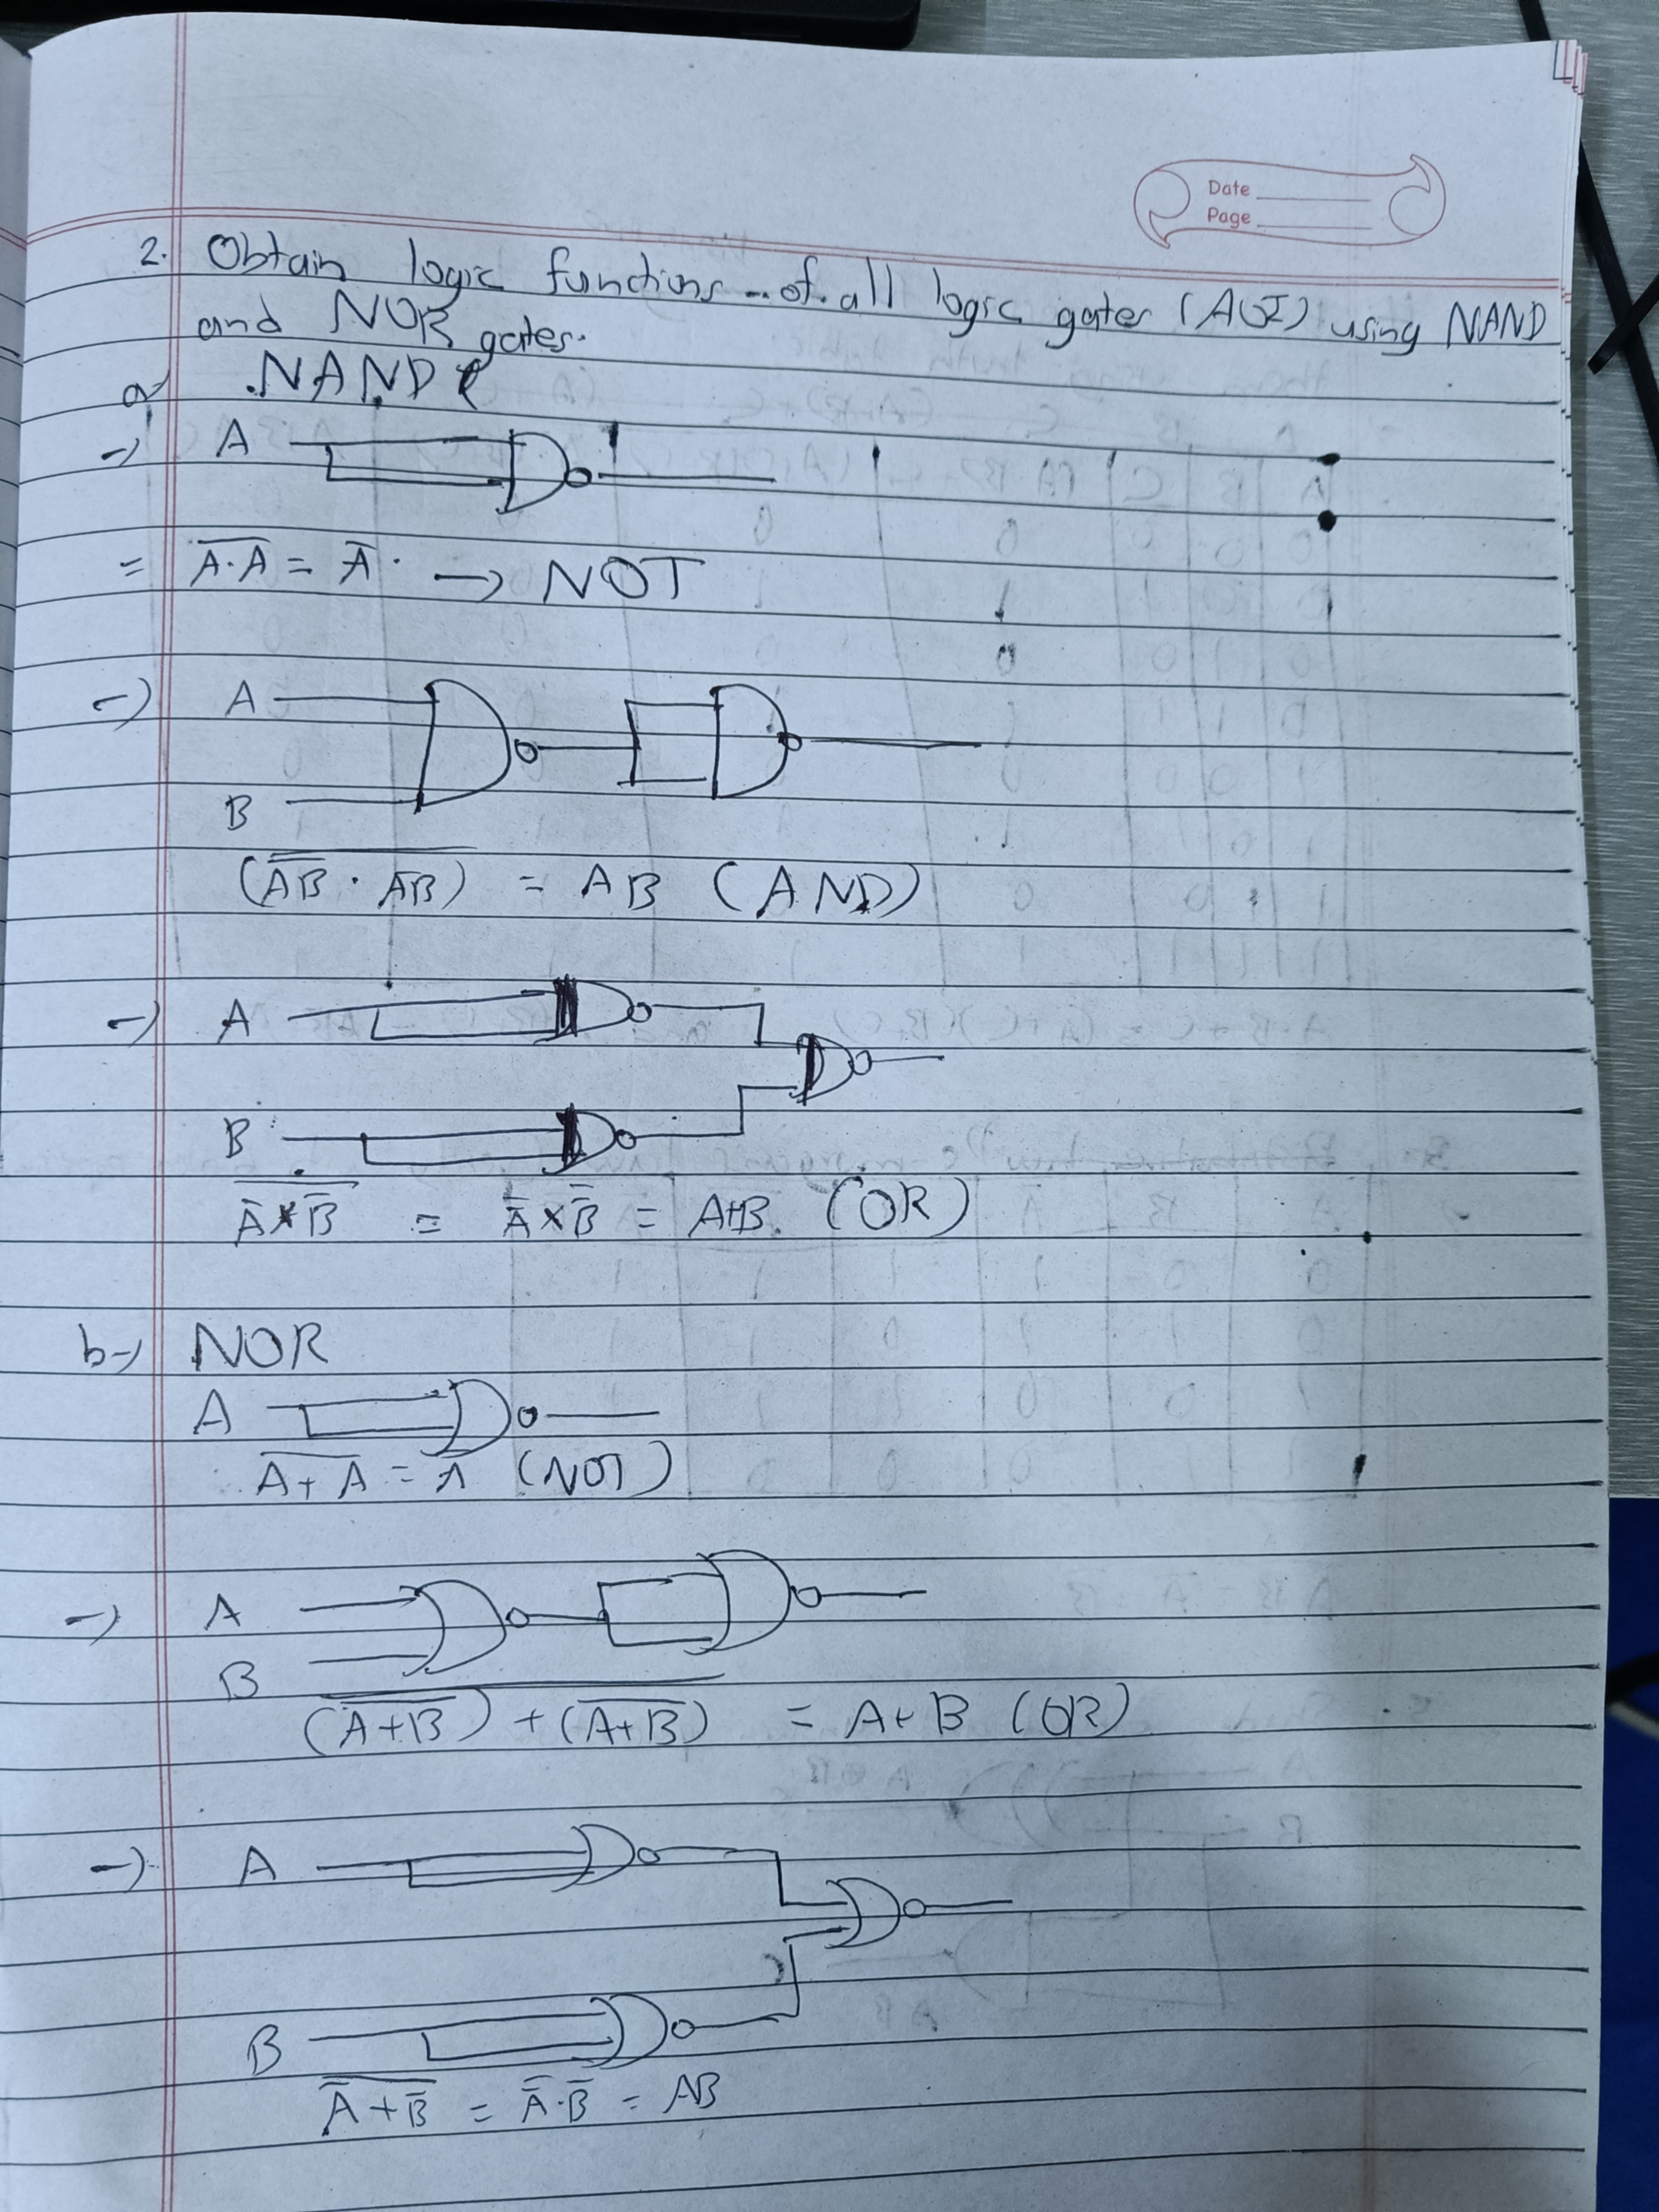 Date
Page
2. Obtain logic functions of all logic gates (AOI) using NAND
and NOR gates.
a) NAND
-) A
= A̅·̅A̅ = A̅ → NOT
-) A
B
(A̅B̅ · A̅B̅)̅ = AB (AND)
-) A
B
A̿ * B̿ = A̿ × B̿ = A+B. (OR)
b-) NOR
A
A̅+̅A̅ = A̅ (NOT)
-) A
B
(A̿+̿B̿) + (A̿+̿B̿) = A+B (OR)
-) A
B
A̿ + B̿ = A̿·B̿ = AB